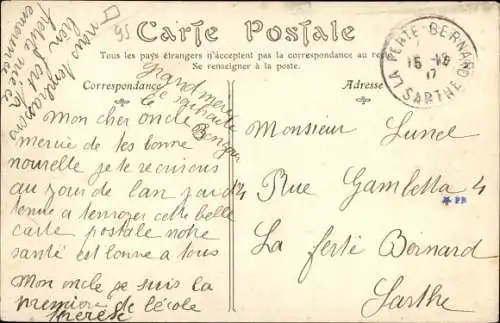 95
Carte Postale
Tous les pays étrangers n'acceptent pas la correspondance au re
Se renseigner à la poste.
Correspondance
Adresse
LA FERTE-BERNARD
15 -
17
SARTHE
nous
bien fort
notre
grand mère
te souhaite
Bonjour
Mon cher oncle
mercie de tes bonne
nouvelle je te
au jour de l'an
tenue a tenvoyer cette belle
carte postale notre
santé est bonne a tous
Mon oncle je suis la
premiere de lécole
therese
Monsieur Lunel
Rue Gambetta 4
PD
La ferté Bernard
Sarthe